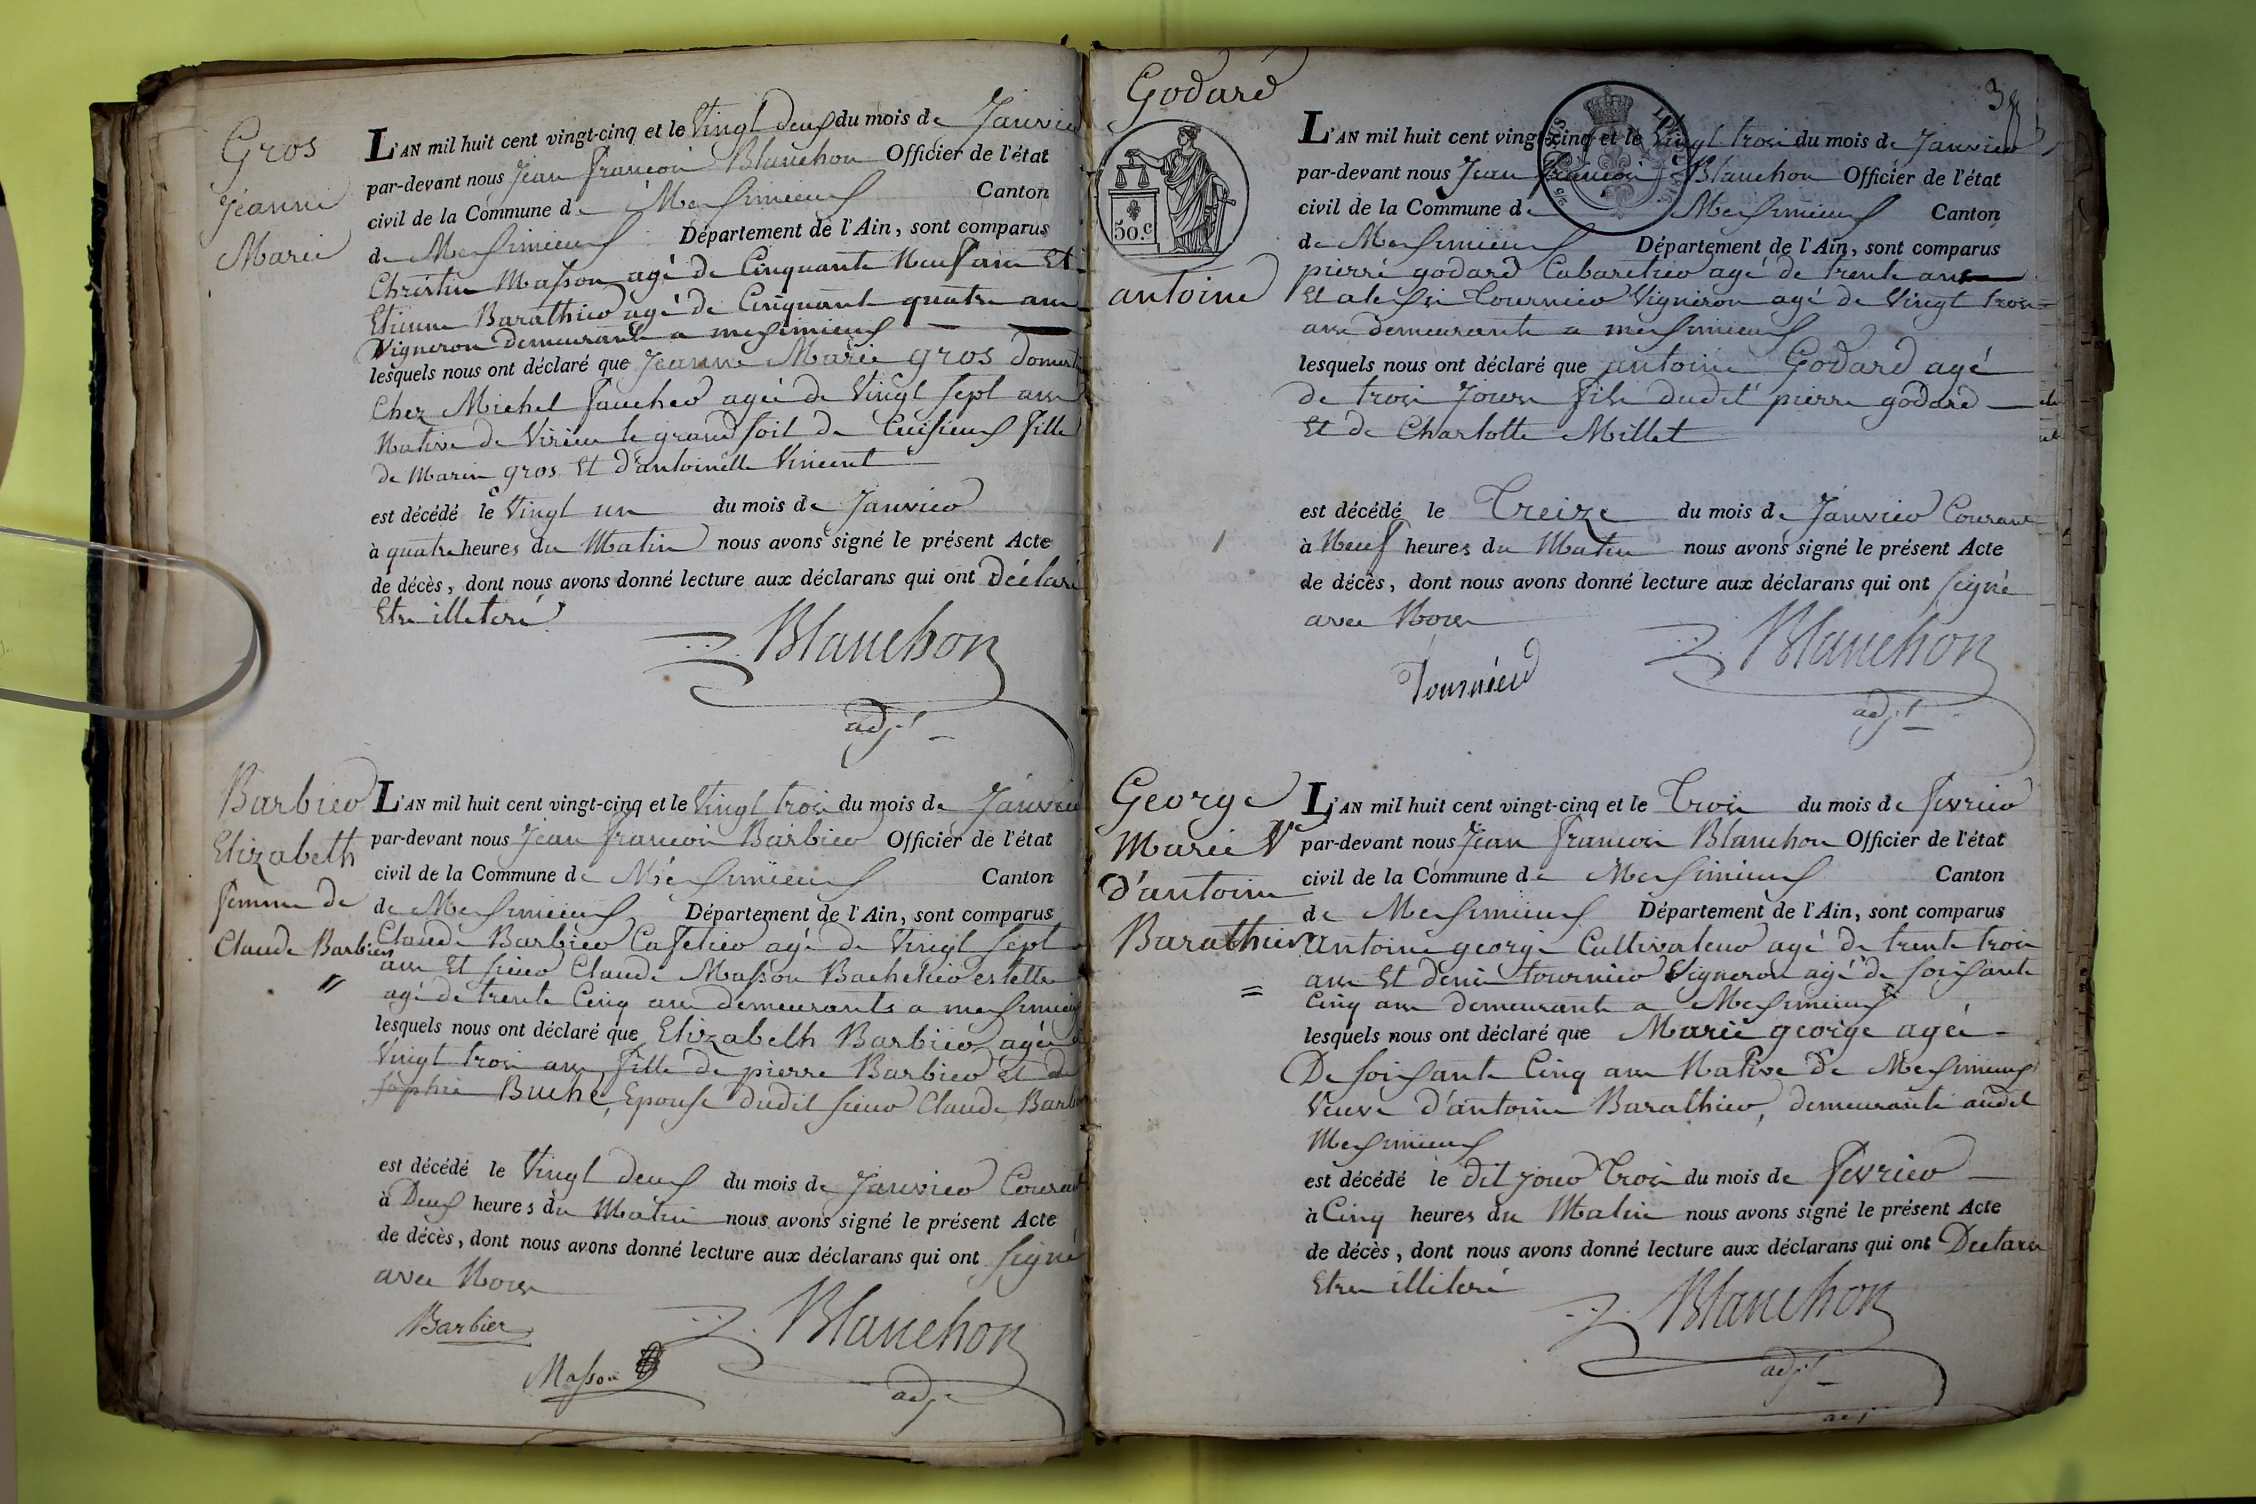 Gros
Jeanne
Marie
L'AN mil huit cent vingt-cinq et le Vingt deux du mois de Janvier
par-devant nous Jean françois Blanchon Officier de l'état
civil de la Commune de Messimieux Canton
de Messimieux Département de l'Ain, sont comparus
Christin Masson agé de Cinquante Neuf ans Et
Etienne Barathier agé de Cinquante quatre ans
Vigneron demeurants a messimieux
lesquels nous ont déclaré que Jeanne Marie gros domesti
Chez Michel faucher agée de Vingt sept ans
Native de Virieu le grand soit de Cuisieux fille
de Marin gros Et d'antoinette Vincent
est décédé le Vingt un du mois de Janvier
à quatre heures du Matin nous avons signé le présent Acte
de décès, dont nous avons donné lecture aux déclarans qui ont Déclaré
Etre illeteré
Blanchon
adjt
Barbier
Elizabeth
femme de
Claude Barbier
L'AN mil huit cent vingt-cinq et le Vingt trois du mois de Janvier
par-devant nous Jean francois Barbier Officier de l'état
civil de la Commune de Méssimieux Canton
de Messimieux Département de l'Ain, sont comparus
Claude Barbier Cafetier agé de Vingt sept
ans Et sieur Claude Masson Bachelier es lettre
agé de trente Cinq ans demeurants a messimieux
lesquels nous ont déclaré que Elizabeth Barbier agée de
Vingt trois ans fille de pierre Barbier et de
sophie Buche, Epouse dudit sieur Claude Barbier
est décédé le Vingt deux du mois de Janvier Courant
à Deux heures du Matin nous avons signé le présent Acte
de décès, dont nous avons donné lecture aux déclarans qui ont signé
avec Nous
Barbier
Blanchon
Masson
adjt
Godard
antoine
50.c
L'AN mil huit cent vingt-cinq et le Vingt trois du mois de Janvier
par-devant nous Jean francois Blanchon Officier de l'état
civil de la Commune de Messimieux Canton
de Messimieux Département de l'Ain, sont comparus
pierre godard Cabaretier agé de trente ans
Et alexsi Tournier Vigniron agé de Vingt trois
ans demeurants a messimieux
lesquels nous ont déclaré que antoine Godard agé
de trois Jours fils dudit pierre godard
Et de Charlotte Millet
est décédé le Treize du mois de Janvier Courant
à Neuf heures du Matin nous avons signé le présent Acte
de décès, dont nous avons donné lecture aux déclarans qui ont signé
avec Nous
Blanchon
Tournier
adjt
George
Marie Ve
d'antoine
Barathier
L'AN mil huit cent vingt-cinq et le Trois du mois de fevrier
par-devant nous Jean francois Blanchon Officier de l'état
civil de la Commune de Messimieux Canton
de Messimieux Département de l'Ain, sont comparus
antoine george Cultivateur agé de trente trois
ans Et denis tournier Vigneron agé de soissante
Cinq ans demeurants a Messimieux
lesquels nous ont déclaré que Marie george agée
De soissante Cinq ans Native De Messimieux
Veuve d'antoine Barathier, demeurante audit
Messimieux
est décédé le dit jour trois du mois de fevrier
à Cinq heures du Matin nous avons signé le présent Acte
de décès, dont nous avons donné lecture aux déclarans qui ont Declaré
Etre illiteré
Blanchon
adjt